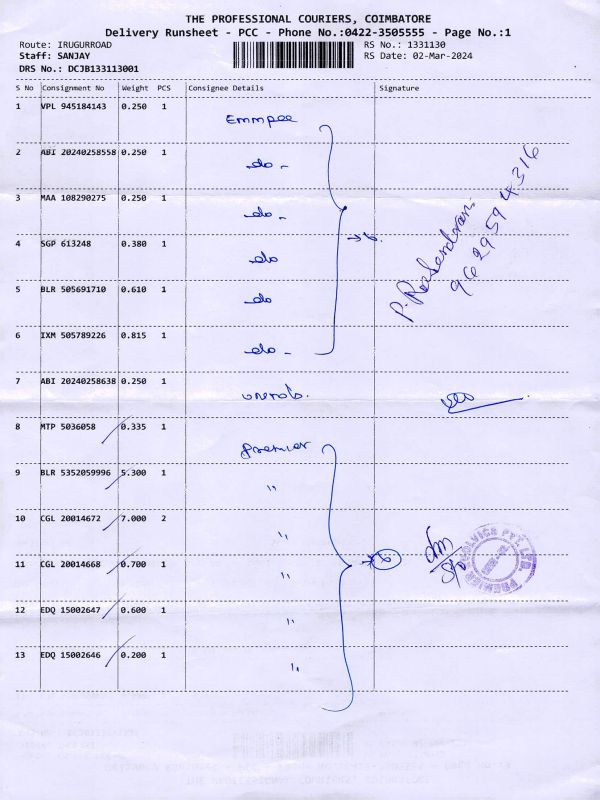 THE PROFESSIONAL COURIERS, COIMBATORE
Delivery Runsheet - PCC - Phone No.:0422-3505555 - Page No.:1
Route: IRUGURROAD RS No.: 1331130
Staff: SANJAY RS Date: 02-Mar-2024
DRS No.: DCJB133113001
S No Consignment No Weight PCS Consignee Details Signature
1 VPL 945184143 0.250 1 Emmpee
2 ABI 20240258558 0.250 1 -do-
3 MAA 108290275 0.250 1 -do-
4 SGP 613248 0.380 1 do
5 BLR 505691710 0.610 1 do
6 IXM 505789226 0.815 1 -do-
→ 6.
9629594316
7 ABI 20240258638 0.250 1
8 MTP 5036058 0.335 1 Premier
9 BLR 5352059996 5.300 1 "
10 CGL 20014672 7.000 2 "
11 CGL 20014668 0.700 1 "
12 EDQ 15002647 0.600 1 "
13 EDQ 15002646 0.200 1 "
→ 6